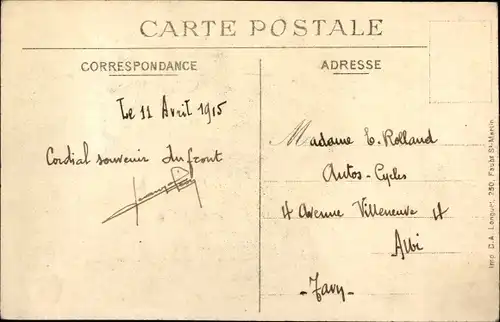 CARTE POSTALE
CORRESPONDANCE
Le 11 Avril 1915
Cordial souvenir du front
ADRESSE
Madame E. Rolland
Autos-Cycles
4 Avenue Villeneuve 4
Albi
-Tarn-
Imp. D.A. Longuet, 250, Faubg St-Martin